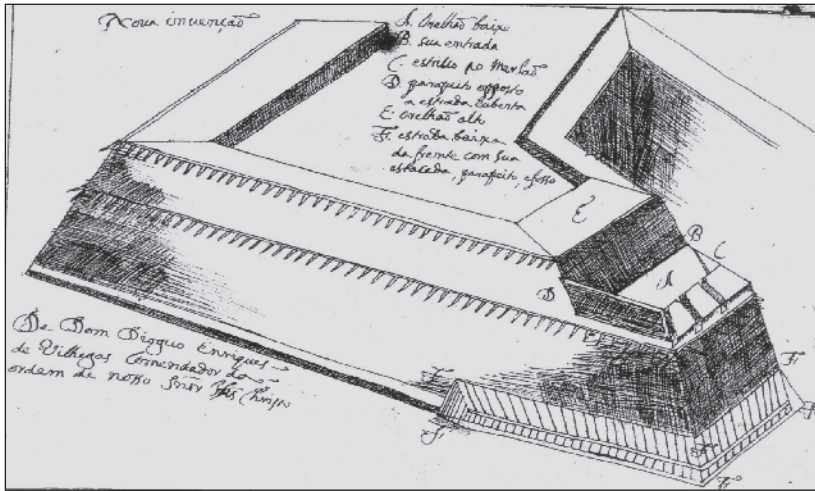 Noua inuenção
A. Orelhão baixo
B. sua entrada
C. estribo po Merlão
D. parapeito opposto
a estrada Cuberta
E. orelhão alto
F. estrada baixa
da frente com sua
estacada, parapeito, e fosso
E
B
C
A
D
F
F
F
F
F
F
De Dom Dioguo Enriques
de Vilhegas Comendador da
ordem de nosso Snõr Jhs Christo